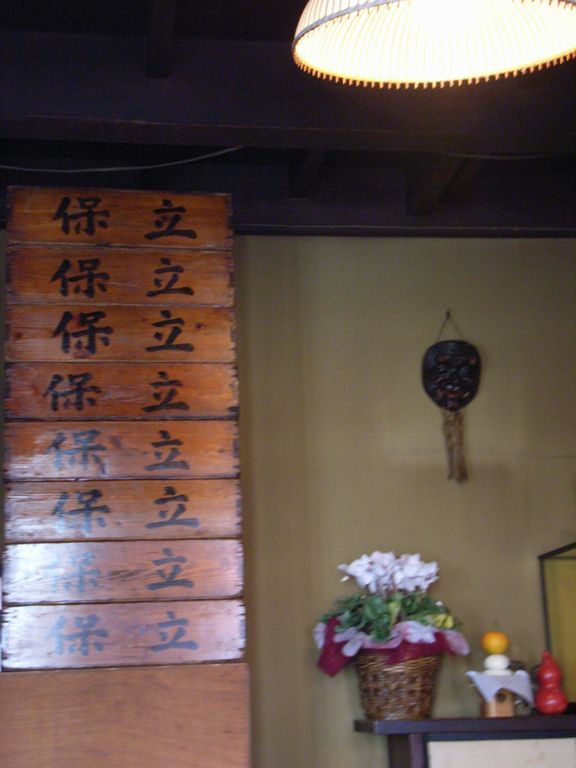 保立
保立
保立
保立
保立
保立
保立
保立